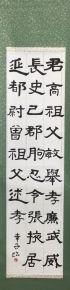 君高祖父敏舉孝廉武威
長史巴郡朐忍令張掖居
延都尉曾祖父述孝